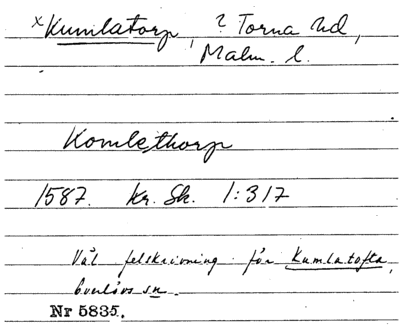 x Kumlatorp, ? Torna hd,
Malm. l.
Komlethorp
1587. Kr. Sk. 1:317
Väl felskrivning för Kumlatofta,
Överlövs sn.
Nr 5835.